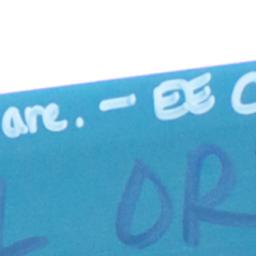 are. - EE C
OR